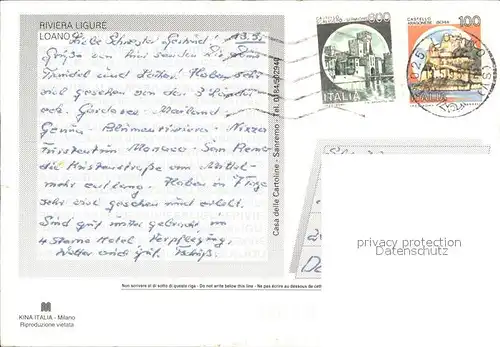 RIVIERA LIGURE
LOANO
Liebe Schwester Gertrud! 13.5.
Grüße von hier senden Dir
und Haben sehr
viel gesehen von den 3 Ländern
Gardasee - Mailand -
Genua - Blumenriviera - Nizza
Fürstentum Monaco - San Remo
die Küstenstraße am Mittel-
meer entlang. Haben in
sehr viel gesehen und erlebt.
Sind gut untergebracht, im
4 Sterne Hotel, Verpflegung,
Wetter auch gut. Tschüß
Casa delle Cartoline - Sanremo - Tel. 0184/502940
800
ITALIA
CASTELLO
ARAGONESE - ISCHIA
100
privacy protection
Datenschutz
Non scrivere al di sotto di questa riga - Do not write below this line - Ne pas écrire au dessous de cette
KINA ITALIA - Milano
Riproduzione vietata